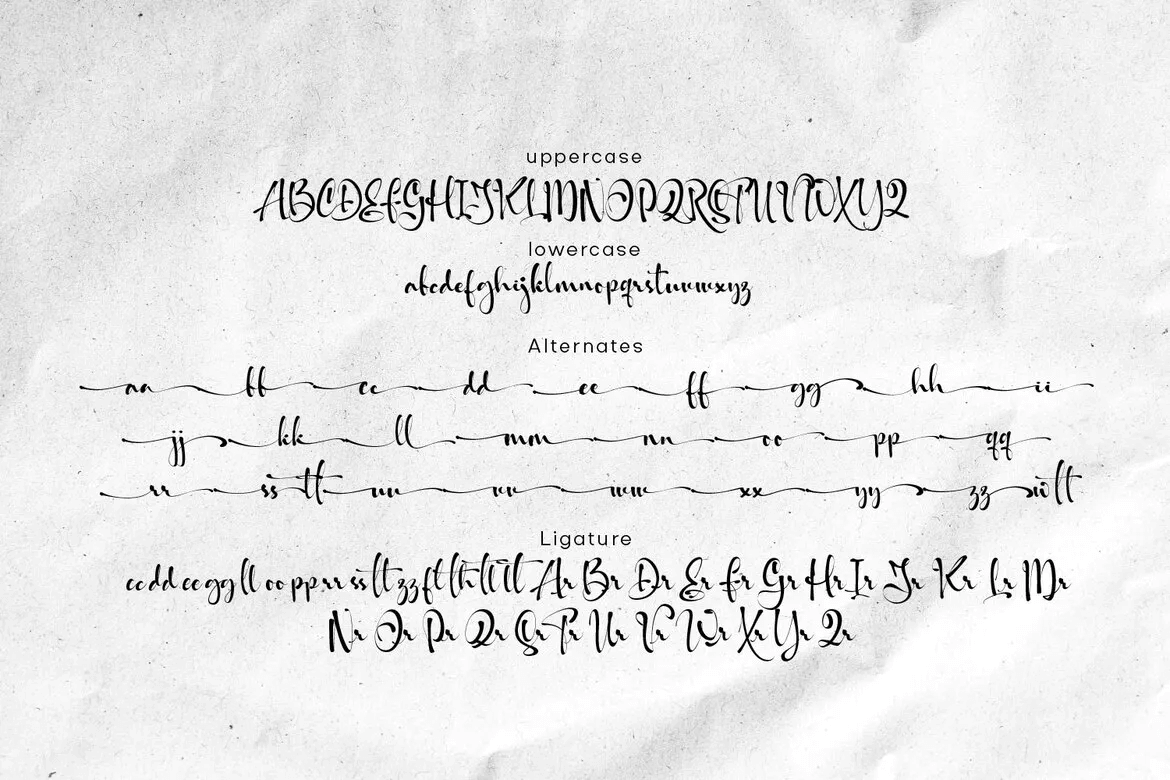 uppercase
ABCDEFGHIJKLMNOPQRSTUVWXYZ
lowercase
abcdefghijklmnopqrstuvwxyz
Alternates
aa bb cc dd ee ff gg hh ii
jj kk ll mm nn oo pp qq
rr ss tt uu vv ww xx yy zz
Ligature
cc dd ee gg ll oo pp rr ss tt zz ft th tl tt Ar Br Dr Er Fr Gr Hr Ir Jr Kr Lr Mr
Nr Or Pr Qr Sr Tr Ur Vr Wr Xr Yr Zr